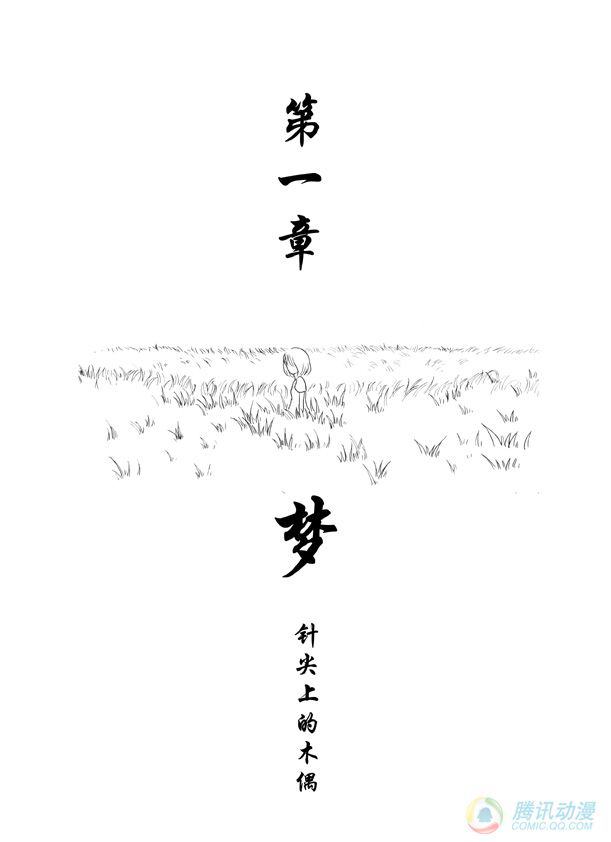 第一章
梦
针尖上的木偶
腾讯动漫
COMIC.QQ.COM